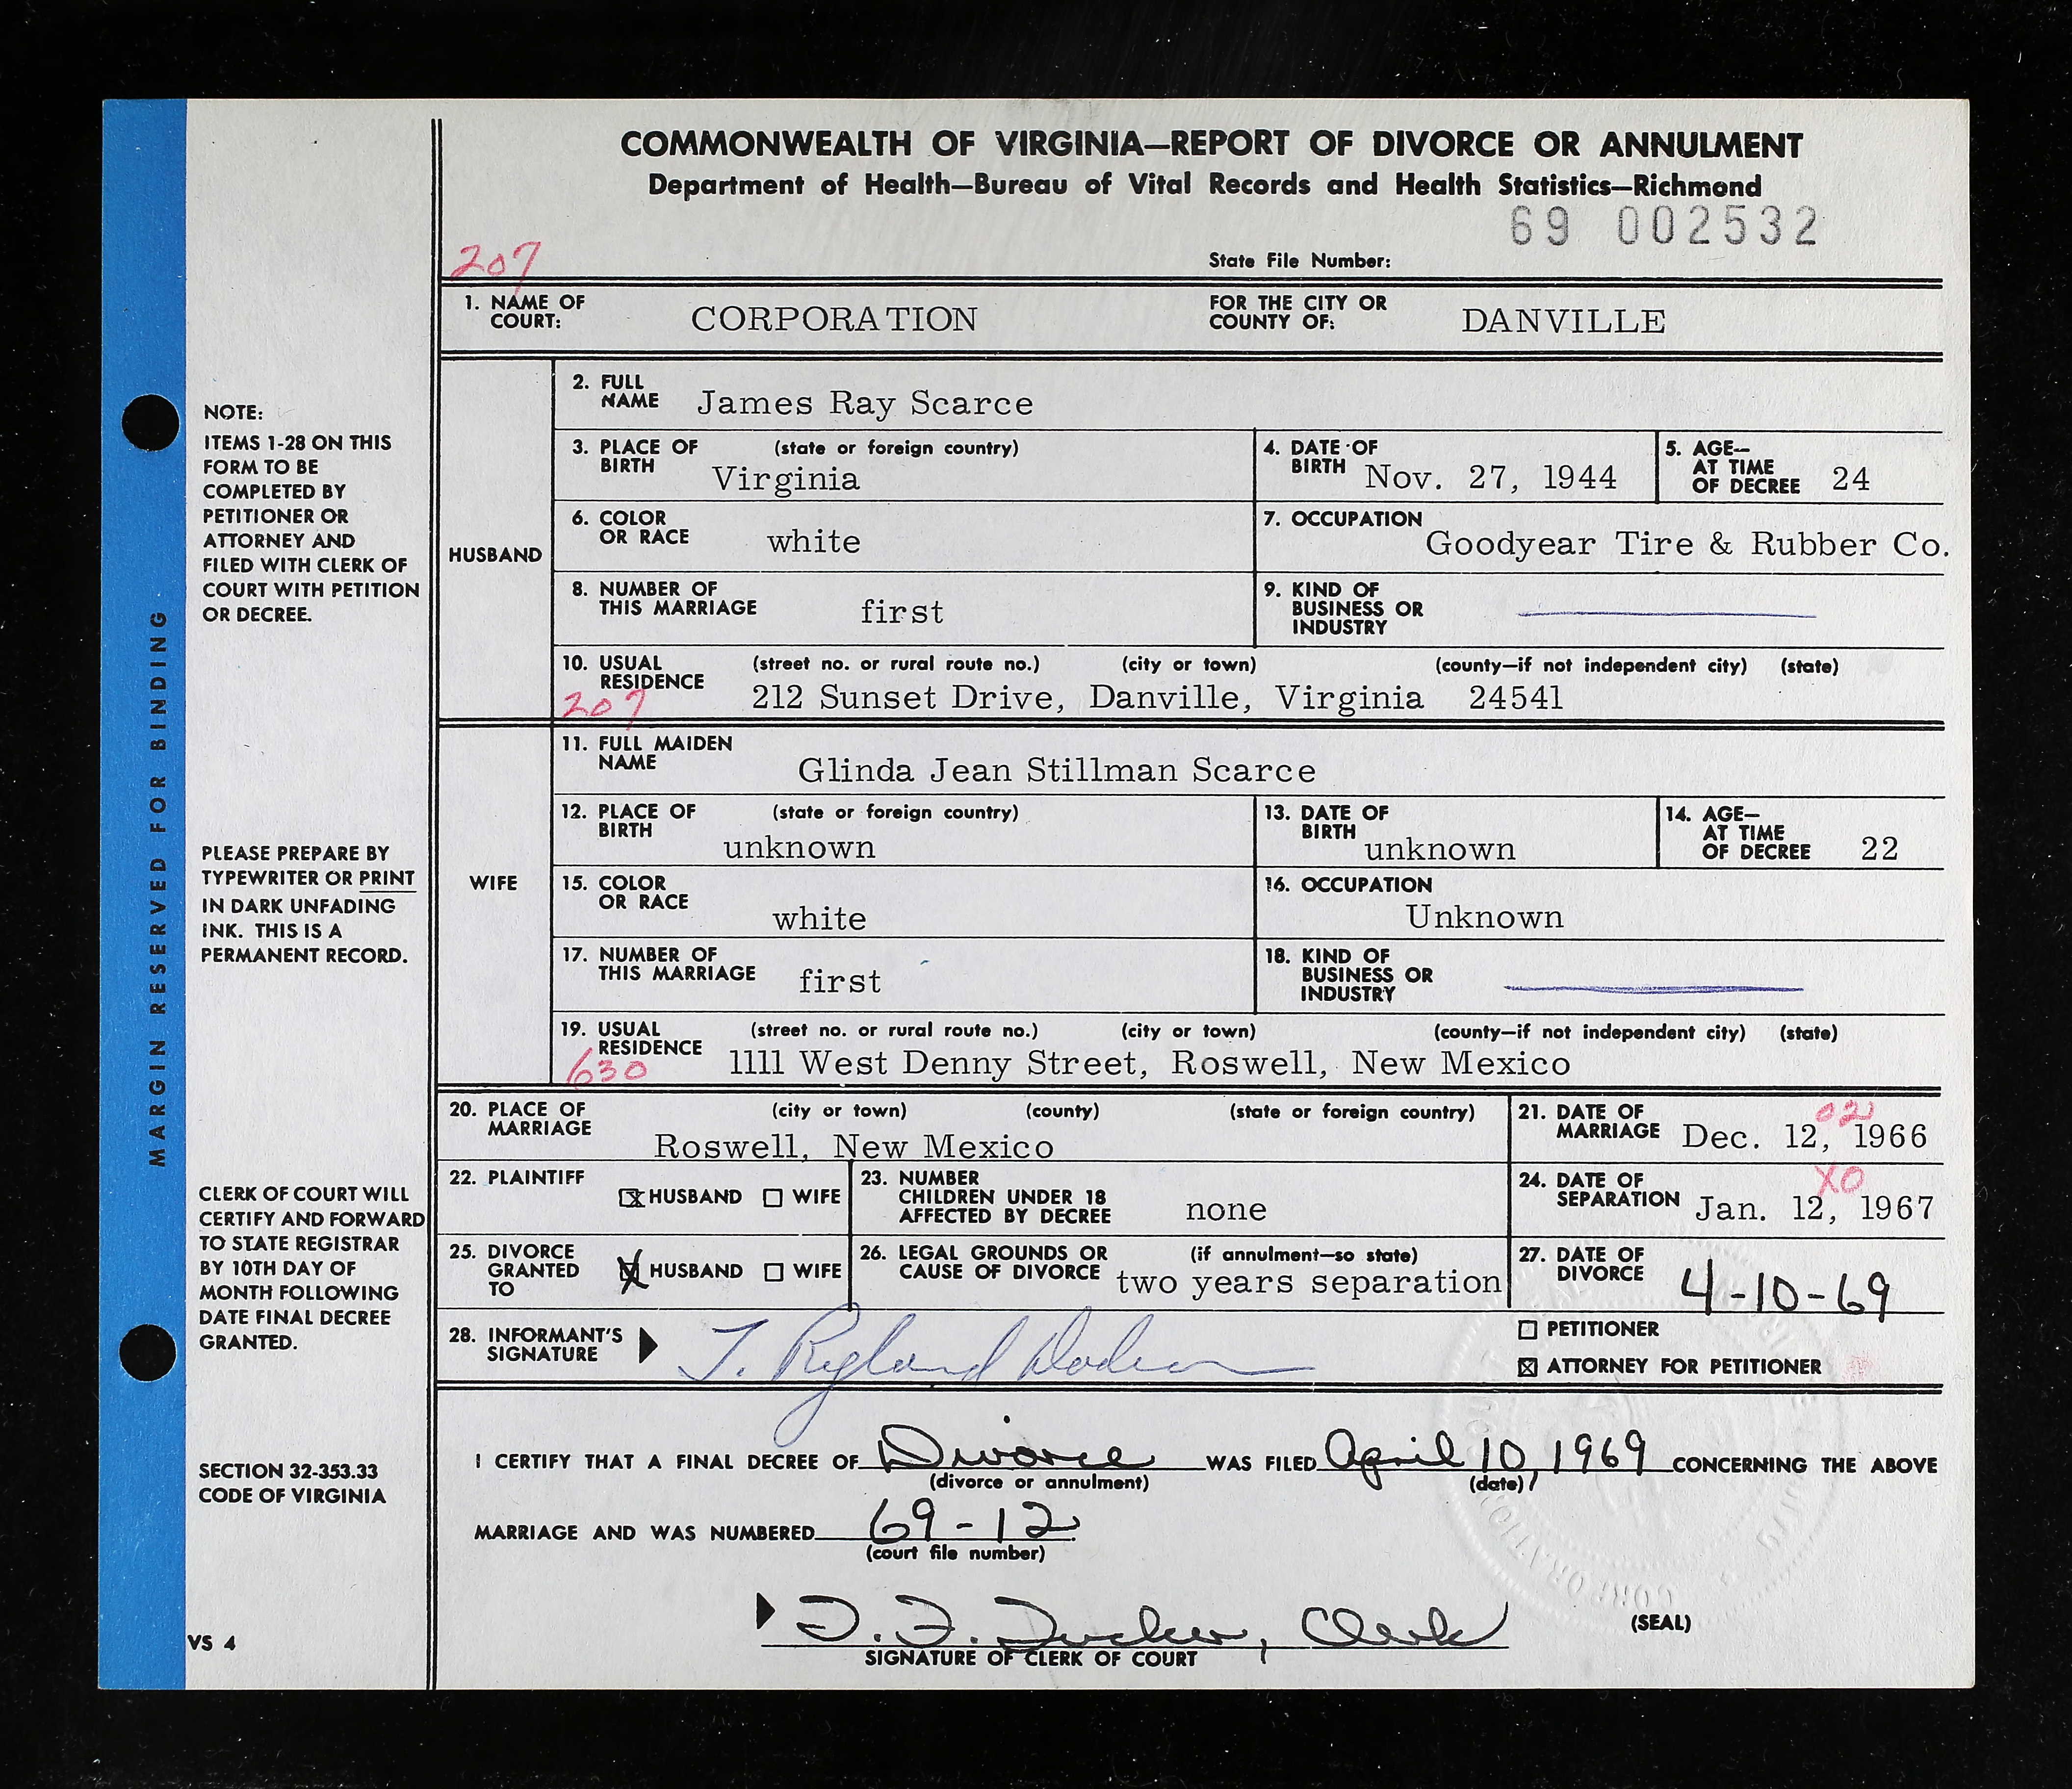 COMMONWEALTH OF VIRGINIA—REPORT OF DIVORCE OR ANNULMENT
Department of Health—Bureau of Vital Records and Health Statistics—Richmond
69 002532
207
State File Number:
1. NAME OF COURT: CORPORATION FOR THE CITY OR COUNTY OF: DANVILLE
HUSBAND
2. FULL NAME James Ray Scarce
3. PLACE OF BIRTH (state or foreign country) Virginia
4. DATE OF BIRTH Nov. 27, 1944
5. AGE— AT TIME OF DECREE 24
6. COLOR OR RACE white
7. OCCUPATION Goodyear Tire & Rubber Co.
8. NUMBER OF THIS MARRIAGE first
9. KIND OF BUSINESS OR INDUSTRY
10. USUAL RESIDENCE (street no. or rural route no.) (city or town) (county—if not independent city) (state)
207 212 Sunset Drive, Danville, Virginia 24541
WIFE
11. FULL MAIDEN NAME Glinda Jean Stillman Scarce
12. PLACE OF BIRTH (state or foreign country) unknown
13. DATE OF BIRTH unknown
14. AGE— AT TIME OF DECREE 22
15. COLOR OR RACE white
16. OCCUPATION Unknown
17. NUMBER OF THIS MARRIAGE first
18. KIND OF BUSINESS OR INDUSTRY
19. USUAL RESIDENCE (street no. or rural route no.) (city or town) (county—if not independent city) (state)
630 1111 West Denny Street, Roswell, New Mexico
20. PLACE OF MARRIAGE (city or town) (county) (state or foreign country)
Roswell, New Mexico
21. DATE OF MARRIAGE 02 Dec. 12, 1966
22. PLAINTIFF X HUSBAND WIFE
23. NUMBER CHILDREN UNDER 18 AFFECTED BY DECREE none
24. DATE OF SEPARATION X0 Jan. 12, 1967
25. DIVORCE GRANTED TO X HUSBAND WIFE
26. LEGAL GROUNDS OR CAUSE OF DIVORCE (if annulment—so state) two years separation
27. DATE OF DIVORCE 4-10-69
28. INFORMANT'S SIGNATURE T. Ryland Dodson
PETITIONER
X ATTORNEY FOR PETITIONER
I CERTIFY THAT A FINAL DECREE OF Divorce WAS FILED April 10, 1969 CONCERNING THE ABOVE
(divorce or annulment) (date)
MARRIAGE AND WAS NUMBERED 69-12
(court file number)
T. F. Tucker, Clerk
SIGNATURE OF CLERK OF COURT
(SEAL)
MARGIN RESERVED FOR BINDING
NOTE:
ITEMS 1-28 ON THIS
FORM TO BE
COMPLETED BY
PETITIONER OR
ATTORNEY AND
FILED WITH CLERK OF
COURT WITH PETITION
OR DECREE.
PLEASE PREPARE BY
TYPEWRITER OR PRINT
IN DARK UNFADING
INK. THIS IS A
PERMANENT RECORD.
CLERK OF COURT WILL
CERTIFY AND FORWARD
TO STATE REGISTRAR
BY 10TH DAY OF
MONTH FOLLOWING
DATE FINAL DECREE
GRANTED.
SECTION 32-353.33
CODE OF VIRGINIA
VS 4